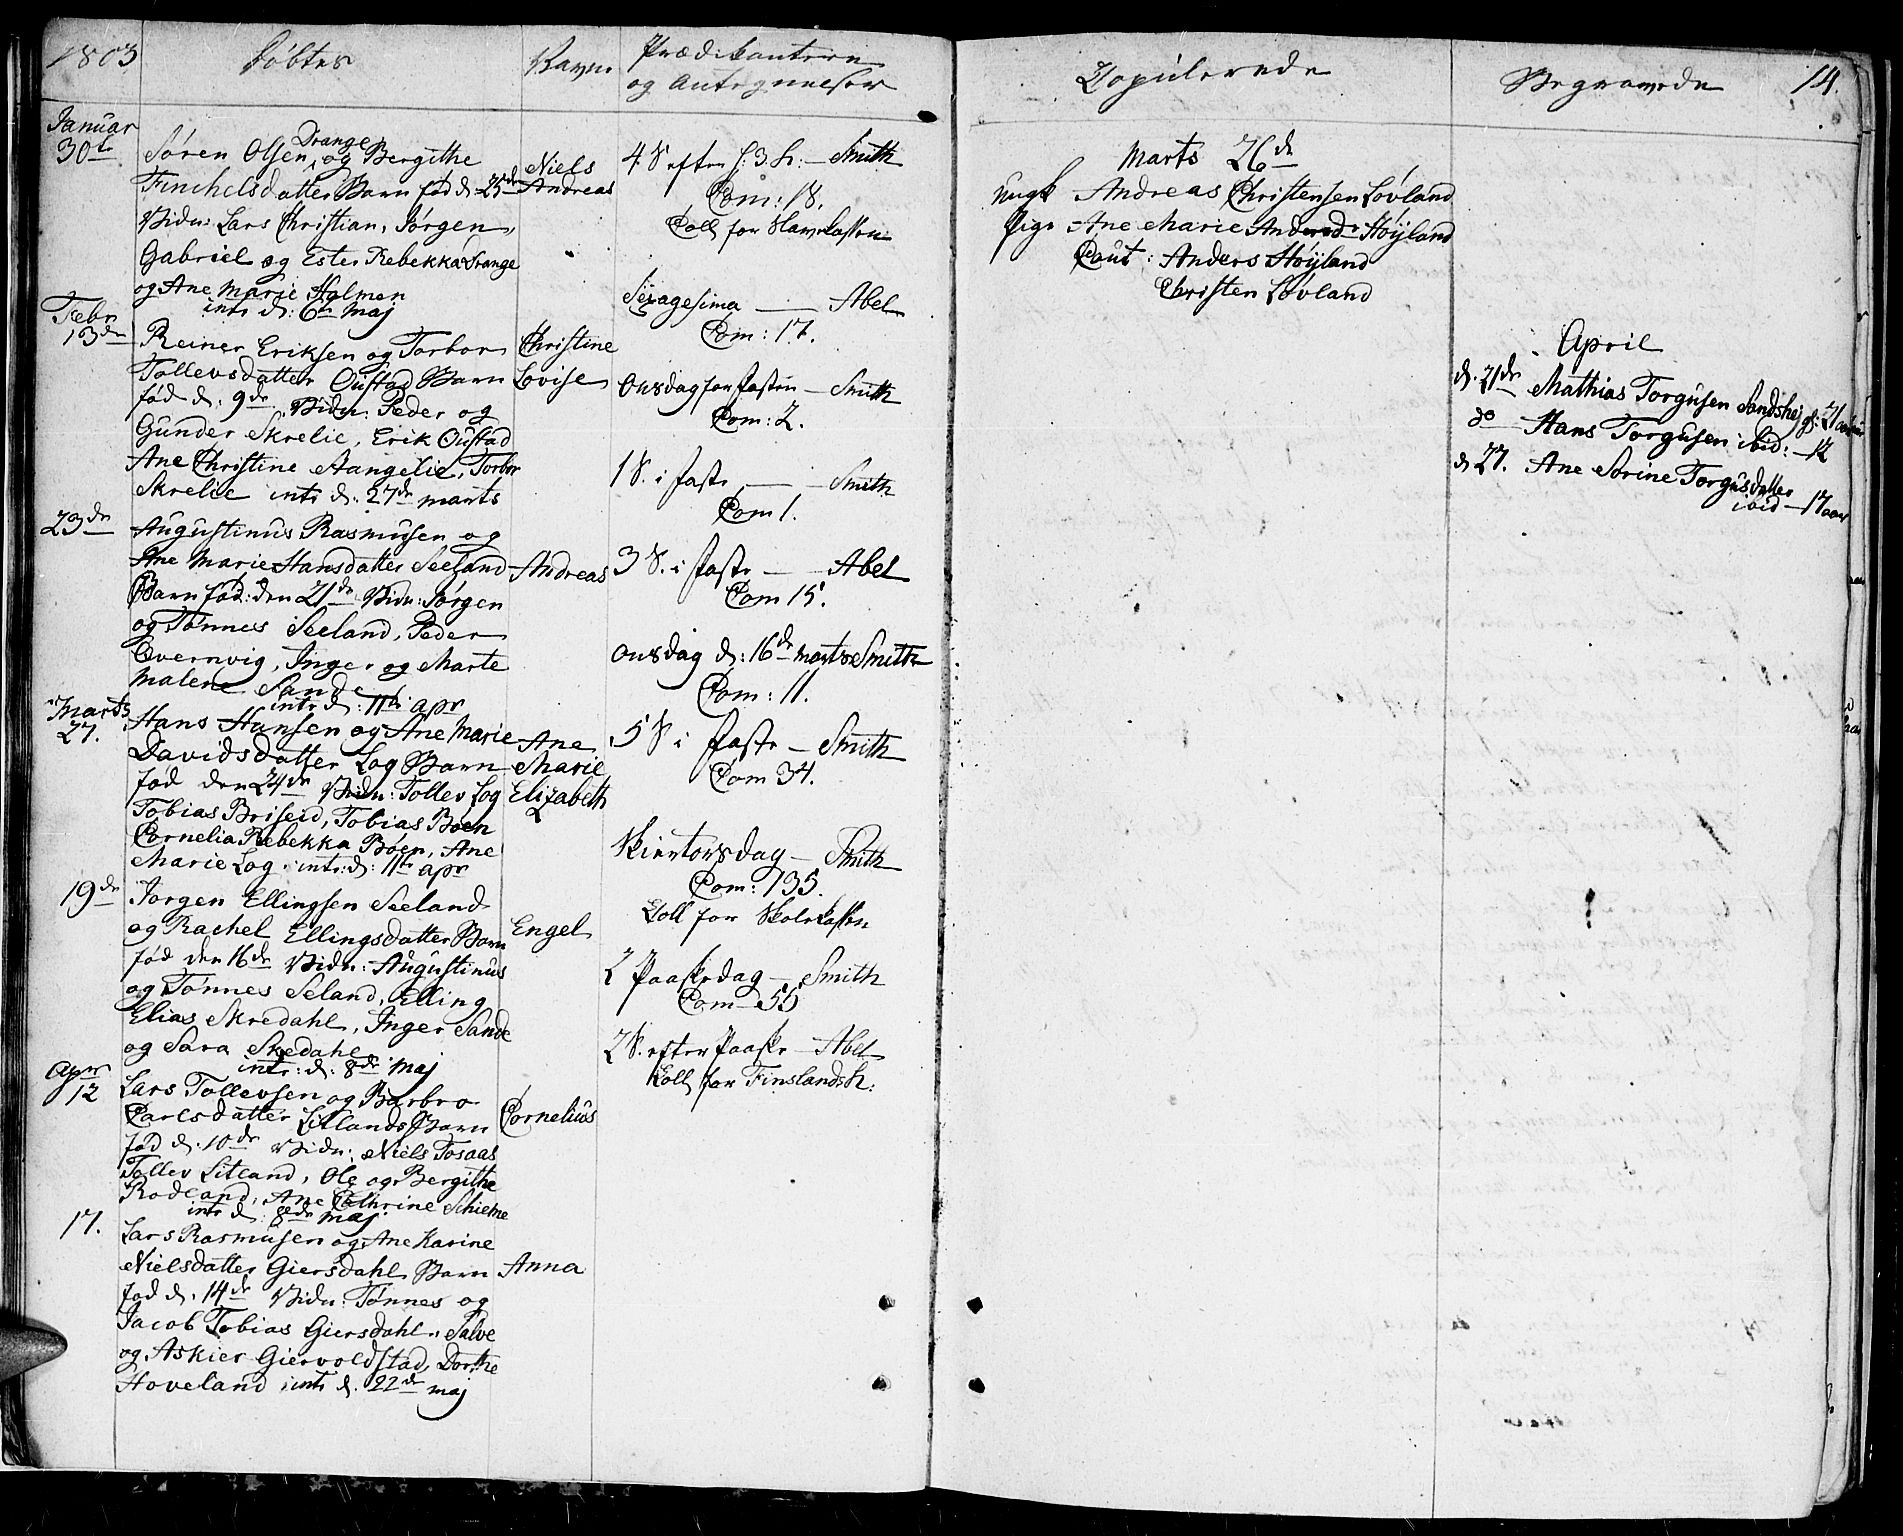 1803
Døbtes
Navne
Prædikanterne
og Antegnelser
Januar
30te
Drange
Søren Olsen, og Bergithe
Finckelsdatter Barn fød d. 25de
Vidn: Lars Christian, Jørgen,
Gabriel og Ester Rebekka Drange
og Ane Marie Holmen
intr d: 6te Maj
Niels
Andreas
Febr
13de
Reiner Eriksen og Torbor
Tollevsdatter Oustad Barn
fød d: 9de Vidn. Peder og
Gunder Skrelie, Erik Oustad
Ane Christine Aangelie, Torbor
Skrelie intr d: 27de Marts
Christine
Lovise
23de
Augustinus Rasmusen og
Ane Marie Hansdatter Seeland
Barn fød: den 21de Vidn: Jørgen
og Tønnes Seeland, Peder
Qvernvig, Inger og Marte
Malene Sande
intr d: 11te apr
Andreas
Marts
27.
Hans Hansen og Ane Marie
Davidsdatter Log Barn
fød den 24de Vidn: Tollev Log
Tobias Briseid, Tobias Boen
Cornelia Rebekka Bøen, Ane
Marie Log. intr: d: 11te apr
Ane
Marie
Elizabeth
19de
Jorgen Ellingsen Seeland
og Rachel Ellingsdatter Barn
fød den 16de Vidn: Augustinus
og Tønnes Seland, Elling
Elias Skredahl, Inger Sande
og Sara Skedahl
intr: d: 8de Maj
Engel
Apr
12
Lars Tollevsen og Barbro
Carlsdatter Litlands Barn
fød d. 10de Vidn: Niels Fosaas
Tollev Litland, Ole og Bergithe
Rodland, Ane Cathrine Schieme
intr d: 8de Maj
Cornelius
17.
Lars Rasmusen og Ane Karine
Nielsdatter Giersdahl Barn
fød d. 14de Vidn: Tønnes og
Jacob Tobias Giersdahl, Salve
og Askier Giervoldstad, Dorthe
Hoveland intr d. 22de Maj
Anna
4 S efter h: 3 K: — Smith
Com: 18.
Coll for Slavekassen
Sexagesima — Abel
Com: 17.
Onsdag for Fasten — Smith
Com: 2.
1 S. i Faste — Smith
Com 1.
3 S. i Faste — Abel
Com 15.
Onsdag d: 16de Marts Smith
Com: 11.
5 S i Faste — Smith
Com 34.
Skiertorsdag — Smith
Com: 135.
Coll for Skolekassen
2 Paaskedag — Smith
Com — 55
2 S. efter Paaske — Abel
Koll for Finslands K:
Copulerede
Marts 26de
Ungk Andreas Christensen Løvland
Pige Ane Marie Andersd Høyland
Caut: Anders Høyland
Christen Løvland
Begravede
14.
April
d. 21de Mathias Torgusen Sandshei gl: 21 aar
do — Hans Torgusen ibid: — 12
d 27. Ane Sorine Torgusdatter
ibid — 17 aar